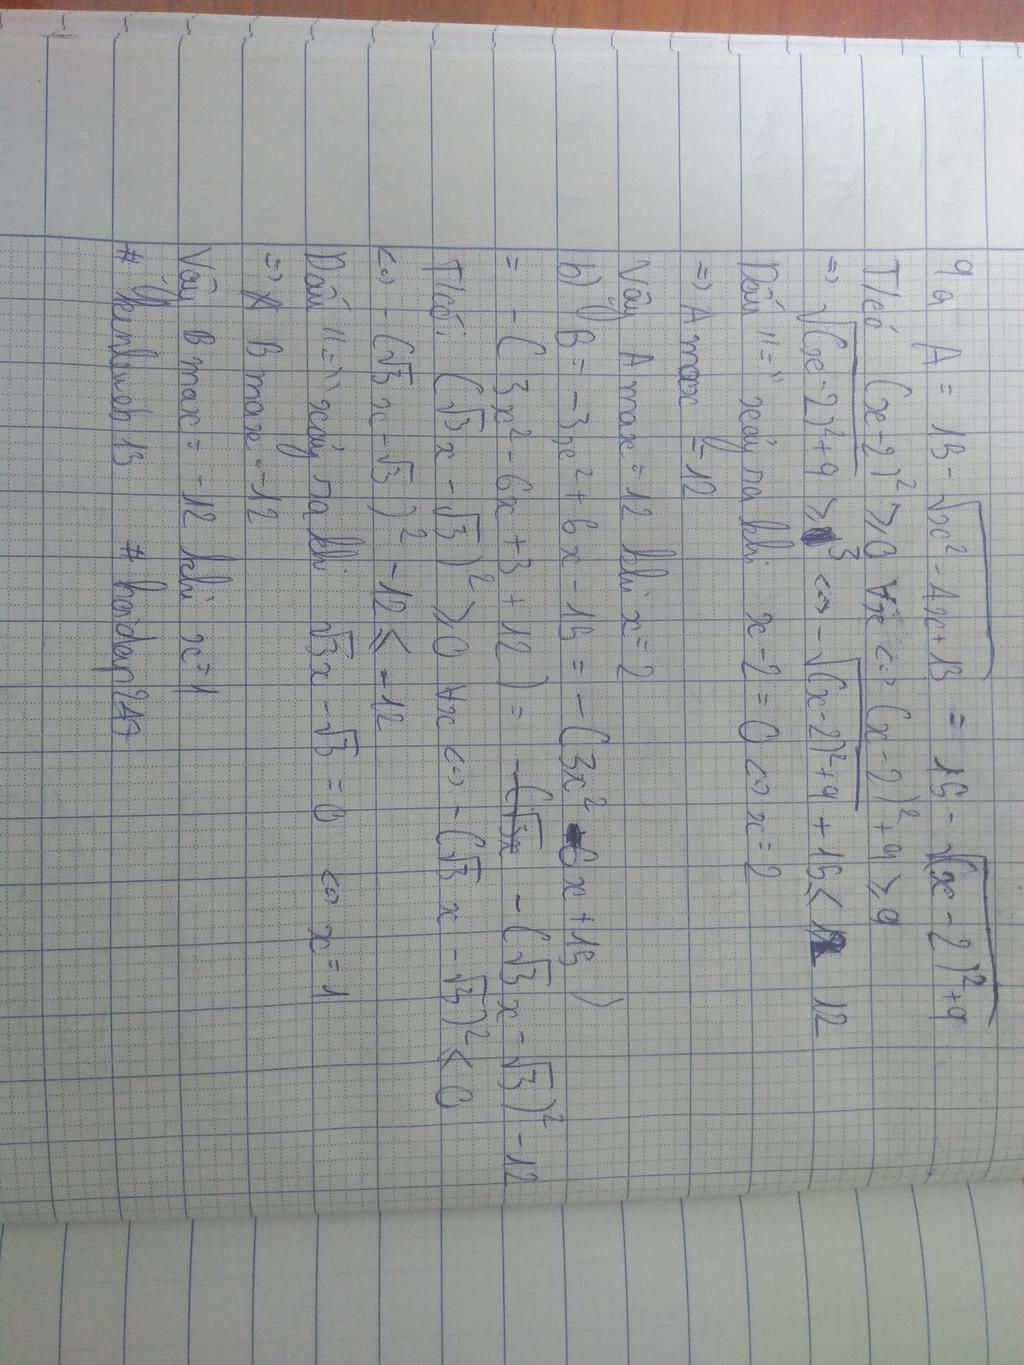 9 a A = 15 - √x² - 4x + 13 = 15 - √(x - 2)² + 9
T/có (x - 2)² ≥ 0 ∀x <=> (x - 2)² + 9 ≥ 9
=> √(x - 2)² + 9 ≥ 3 <=> - √(x - 2)² + 9 + 15 ≤ 12
Dấu "=" xảy ra khi x - 2 = 0 <=> x = 2
=> A max = 12
Vậy A max = 12 khi x = 2
b) B = - 3x² + 6x - 15 = - (3x² - 6x + 15)
= - (3x² - 6x + 3 + 12) = - (√3 x - √3)² - 12
T/có: (√3 x - √3)² ≥ 0 ∀x <=> - (√3 x - √3)² ≤ 0
<=> - (√3 x - √3)² - 12 ≤ - 12
Dấu "=" xảy ra khi √3x - √3 = 0 <=> x = 1
=> B max = -12
Vậy B max = -12 khi x = 1
# hoidap247